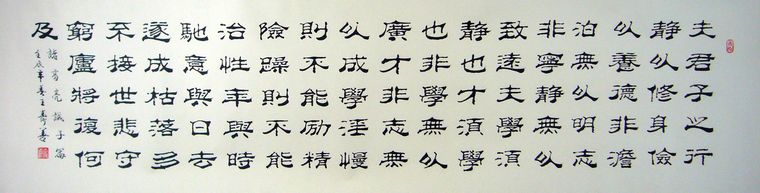 夫君子之行
静以修身儉
以養德非澹
泊無以明志
非寧静無以
致遠夫學須
静也才須學
也非學無以
廣才非志無
以成學淫慢
則不能励精
險躁則不能
治性年與時
馳意與日去
遂成枯落多
不接世悲守
窮廬將復何
及
諸葛亮誡子篇
壬辰年春王壽善